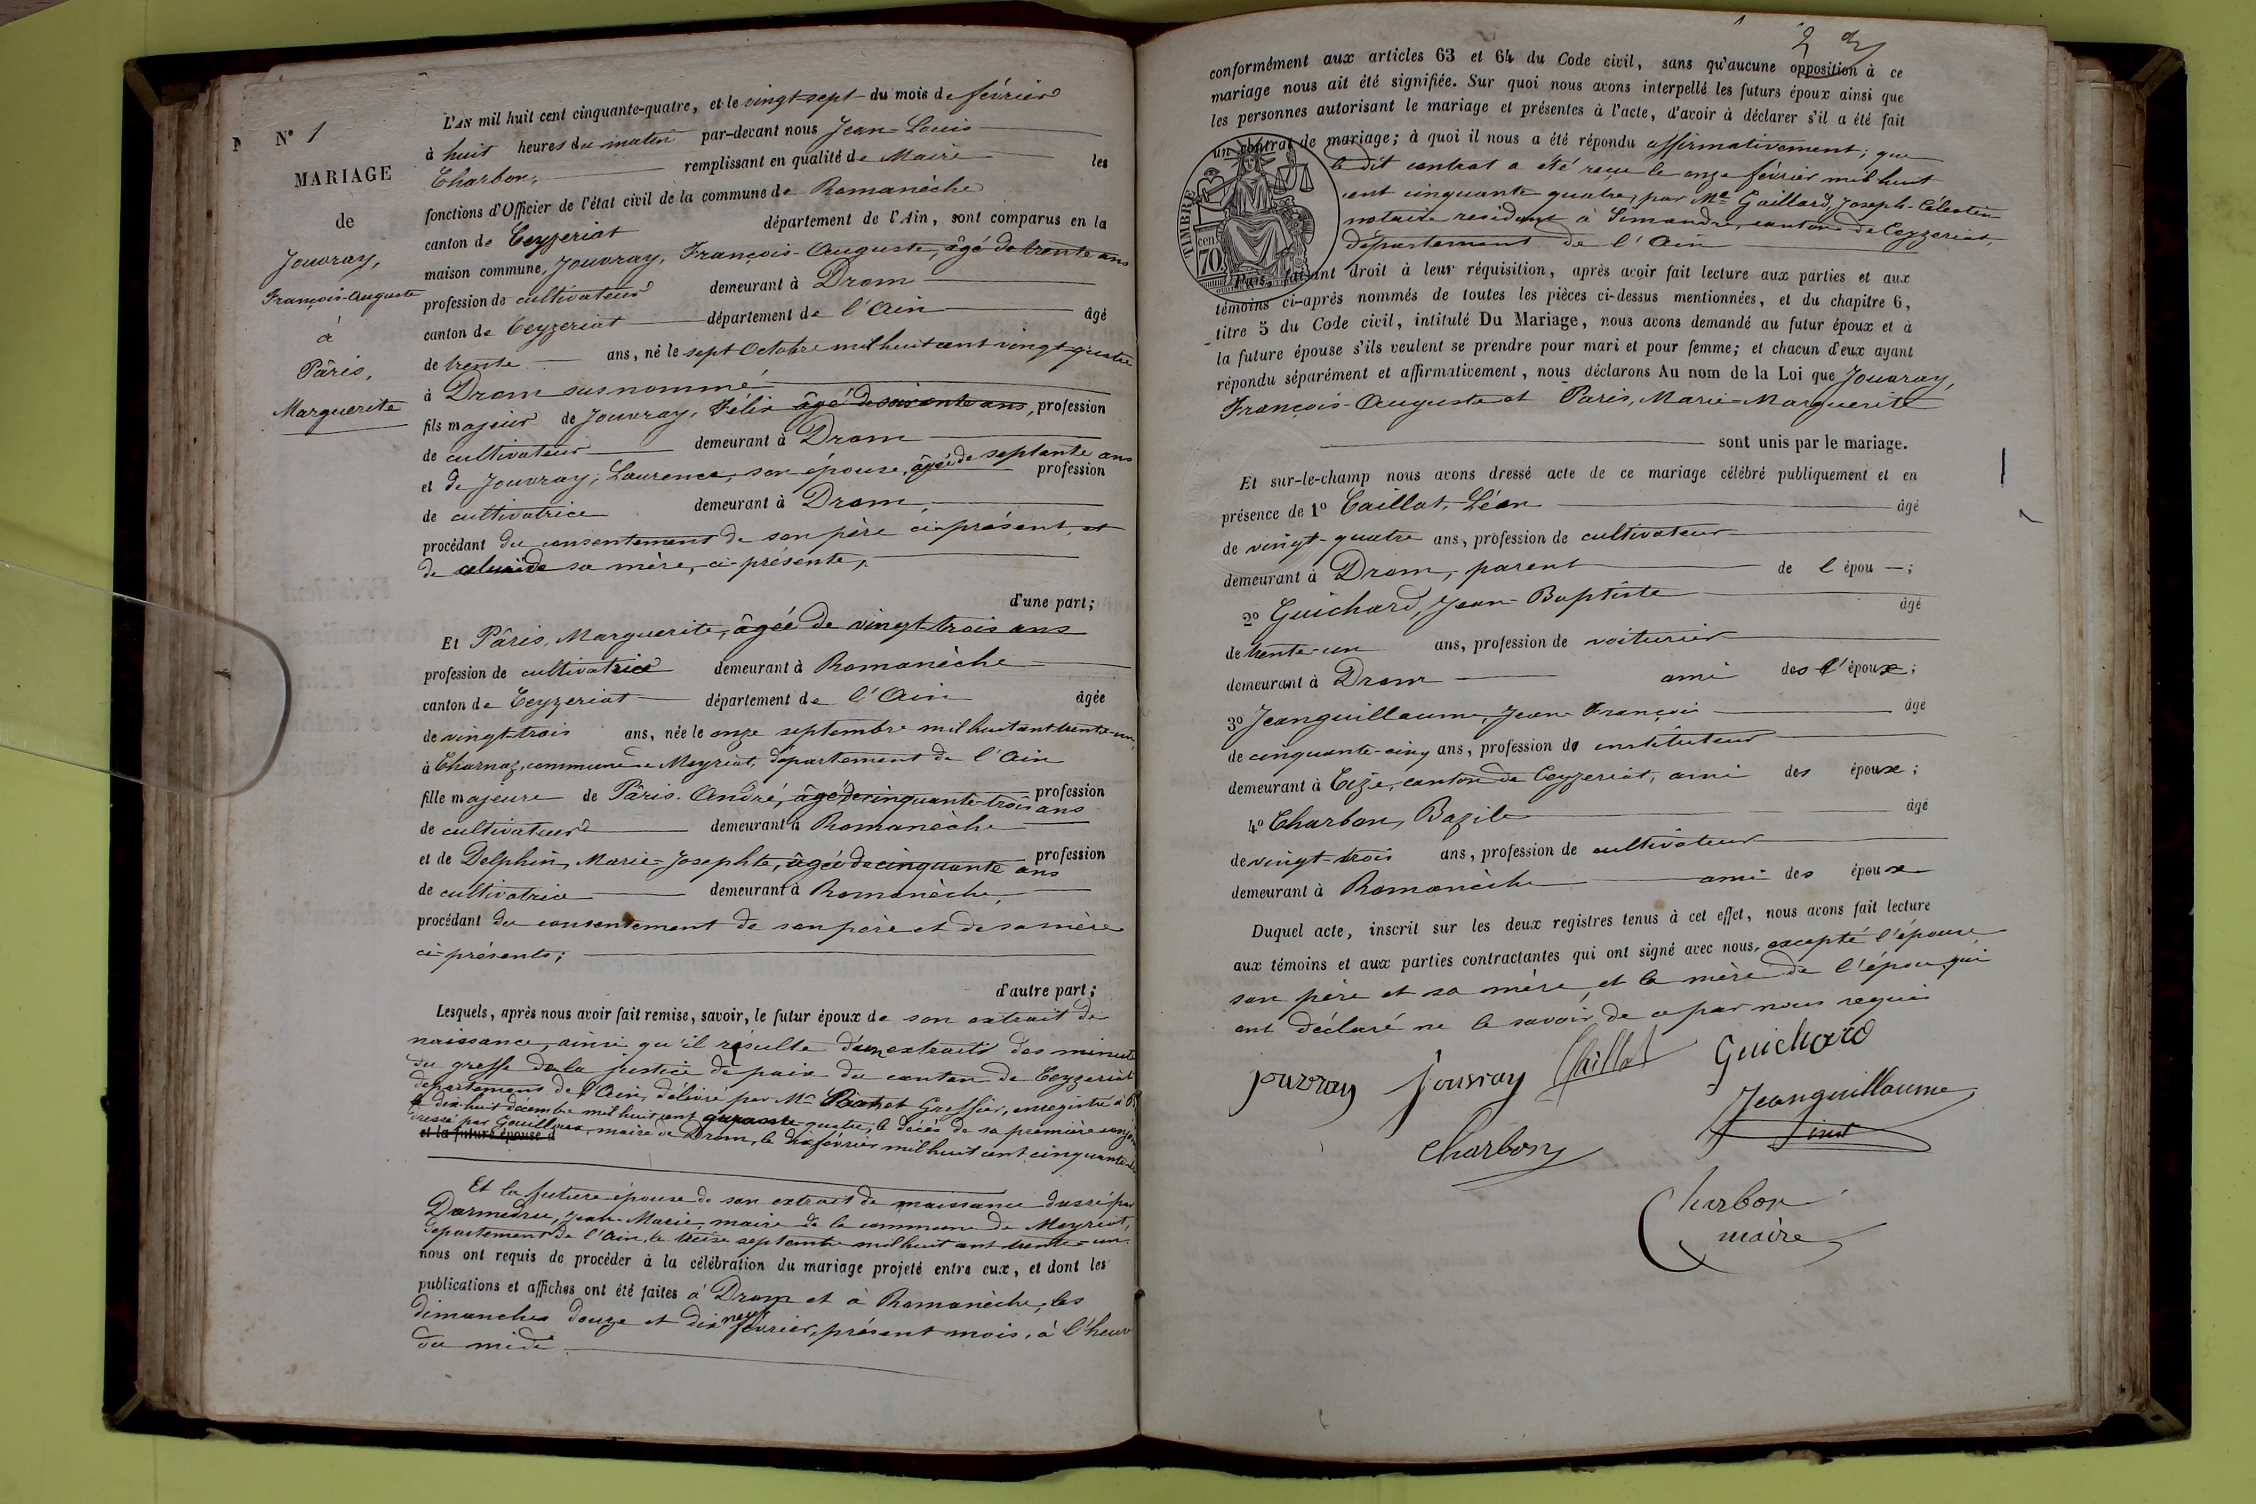 N° 1
MARIAGE
de
Jouvray,
François-Auguste
à
Pâris,
Marguerite
L'AN mil huit cent cinquante-quatre, et le vingt-sept du mois de février
à huit heures du matin par-devant nous Jean-Louis
Charbon, remplissant en qualité de Maire les
fonctions d'Officier de l'état civil de la commune de Romanèche
canton de Ceyzeriat département de l'Ain, sont comparus en la
maison commune, Jouvray, François-Auguste, âgé de trente ans
profession de cultivateur demeurant à Drom
canton de Ceyzeriat département de l'Ain âgé
de trente ans, né le sept Octobre mil huit cent vingt-quatre
à Drom susnommé
fils majeur de Jouvray, Félix âgé de soixante ans, profession
de cultivateur demeurant à Drom
et de Jouvray, Laurence, son épouse, âgée de septante ans profession
de cultivatrice demeurant à Drom,
procédant du consentement de son père ci-présent, et
de celui de sa mère, ci-présente,
d'une part;
Et Pâris, Marguerite, âgée de vingt-trois ans
profession de cultivatrice demeurant à Romanèche
canton de Ceyzeriat département de l'Ain âgée
de vingt-trois ans, née le onze septembre mil huit cent trente-un,
à Charnaz, commune de Meyriat, département de l'Ain
fille majeure de Pâris André, âgé de cinquante-trois ans profession
de cultivateur demeurant à Romanèche
et de Delphin, Marie-Josephte, âgée de cinquante ans profession
de cultivatrice demeurant à Romanèche,
procédant du consentement de son père et de sa mère
ci-présents;
d'autre part;
Lesquels, après nous avoir fait remise, savoir, le futur époux de son extrait de
naissance, ainsi qu'il résulte d'un extrait des minutes
du greffe de la justice de paix du canton de Ceyzeriat
département de l'Ain, délivré par Me Greffier, enregistré
le dix-huit décembre mil huit cent quarante quatre, le décès de sa première
dressé par maire de Drom, le février mil huit cent cinquante
et la future épouse d
Et la future épouse de son extrait de naissance dressé par
Darmedru, Jean-Marie, maire de la commune de Meyriat,
département de l'Ain, le treize septembre mil huit cent trente-un.
nous ont requis de procéder à la célébration du mariage projeté entre eux, et dont les
publications et affiches ont été faites à Drom et à Romanèche, les
dimanches douze et dix neuf février, présent mois, à l'heure
du midi
2
conformément aux articles 63 et 64 du Code civil, sans qu'aucune opposition à ce
mariage nous ait été signifiée. Sur quoi nous avons interpellé les futurs époux ainsi que
les personnes autorisant le mariage et présentes à l'acte, d'avoir à déclarer s'il a été fait
un contrat de mariage; à quoi il nous a été répondu affirmativement; que
le dit contrat a été reçu le onze février mil huit
cent cinquante quatre, par Me Gaillard, Joseph-Célestin
notaire résidant à Simandre, canton de Ceyzeriat,
département de l'Ain
TIMBRE
cent
70
Puis, faisant droit à leur réquisition, après avoir fait lecture aux parties et aux
témoins ci-après nommés de toutes les pièces ci-dessus mentionnées, et du chapitre 6,
titre 5 du Code civil, intitulé Du Mariage, nous avons demandé au futur époux et à
la future épouse s'ils veulent se prendre pour mari et pour femme; et chacun d'eux ayant
répondu séparément et affirmativement, nous déclarons Au nom de la Loi que Jouvray,
François-Auguste et Paris, Marie-Marguerite
sont unis par le mariage.
Et sur-le-champ nous avons dressé acte de ce mariage célébré publiquement et en
présence de 1° Caillat, Léon âgé
de vingt-quatre ans, profession de cultivateur
demeurant à Drom, parent de l'épou ;
2° Guichard, Jean-Baptiste âgé
de trente-un ans, profession de voiturier
demeurant à Drom ami des l'époux;
3° Jeanguillaume, Jean François âgé
de cinquante-cinq ans, profession de instituteur
demeurant à Cize, canton de Ceyzeriat, ami des époux;
4° Charbon, Bazile âgé
de vingt-trois ans, profession de cultivateur
demeurant à Romanèche ami des époux
Duquel acte, inscrit sur les deux registres tenus à cet effet, nous avons fait lecture
aux témoins et aux parties contractantes qui ont signé avec nous, excepté l'épouse,
son père et sa mère, et la mère de l'époux qui
ont déclaré ne le savoir de ce par nous requis
Jouvray Jouvray Caillat Guichard
Jeanguillaume
inst
Charbon
Charbon
maire